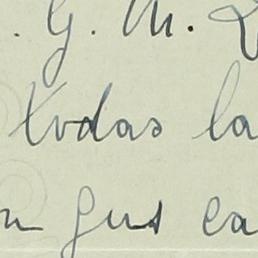 . G. M.
todas la
gus ca